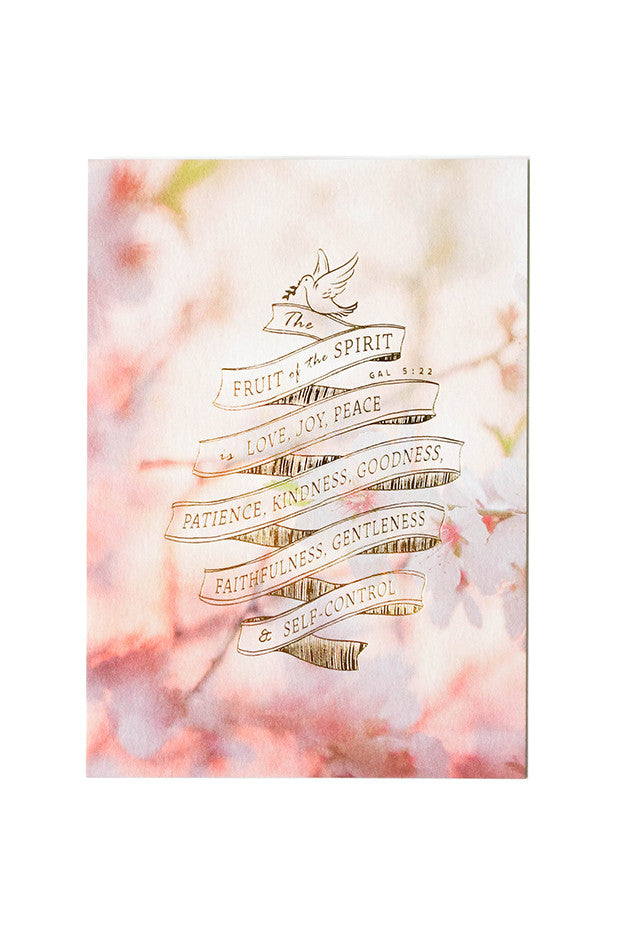 The
FRUIT of the SPIRIT
GAL 5:22
is LOVE, JOY, PEACE
PATIENCE, KINDNESS, GOODNESS,
FAITHFULNESS, GENTLENESS
& SELF-CONTROL